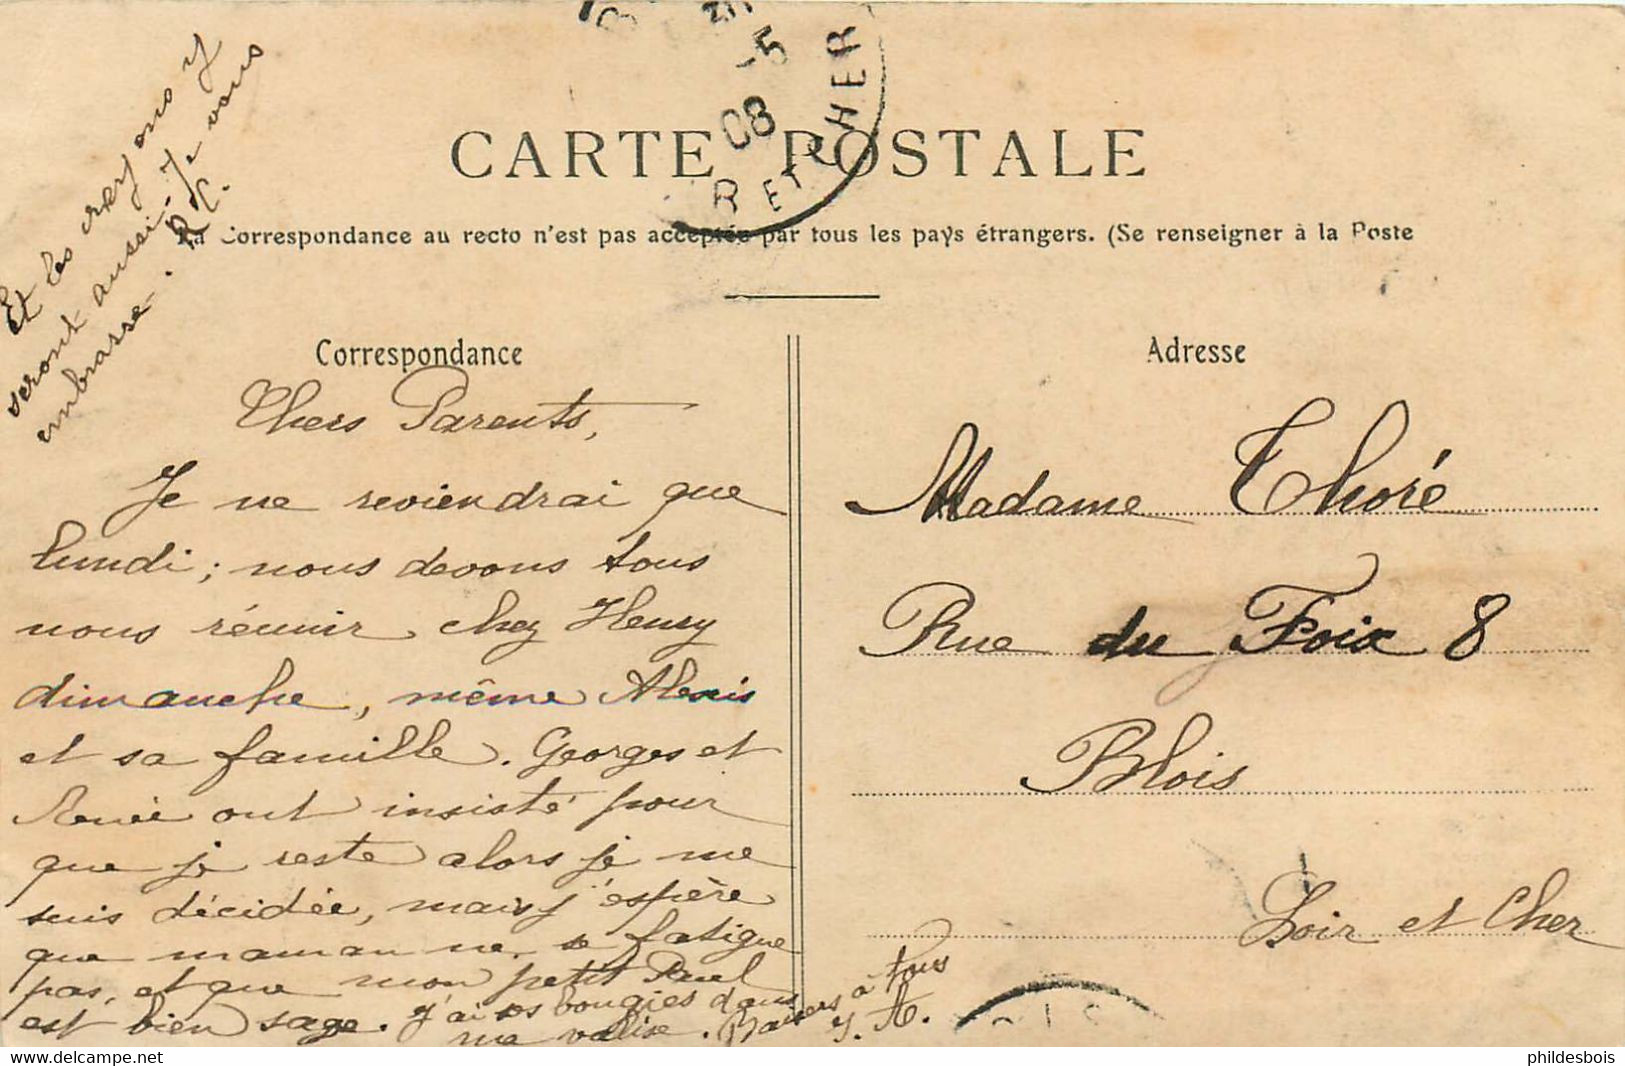 CARTE POSTALE
La Correspondance au recto n'est pas acceptée par tous les pays étrangers. (Se renseigner à la Poste
-5
08
ET CHER
Et les crayons y
seront aussi. Je vous
embrasse.
Correspondance
Chers Parents,
Je ne reviendrai que
lundi; nous devons tous
nous réunir chez Henry
dimanche, même Alexis
et sa famille. Georges et
Renée ont insisté pour
que je reste alors je me
suis décidée, mais j'espère
que maman ne se fatigue
pas, et que mon petit Paul
est bien sage. J'ai les bougies dans
ma valise. Baisers à tous
Adresse
Madame Thoré
Rue du Foix 8
Blois
Loir et Cher
phildesbois